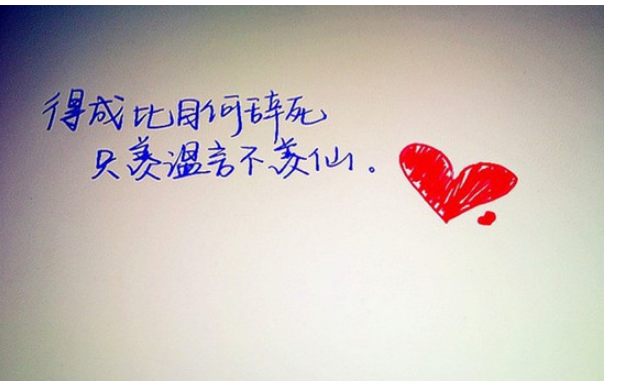 得成比目何辞死
只羡温言不羡仙。